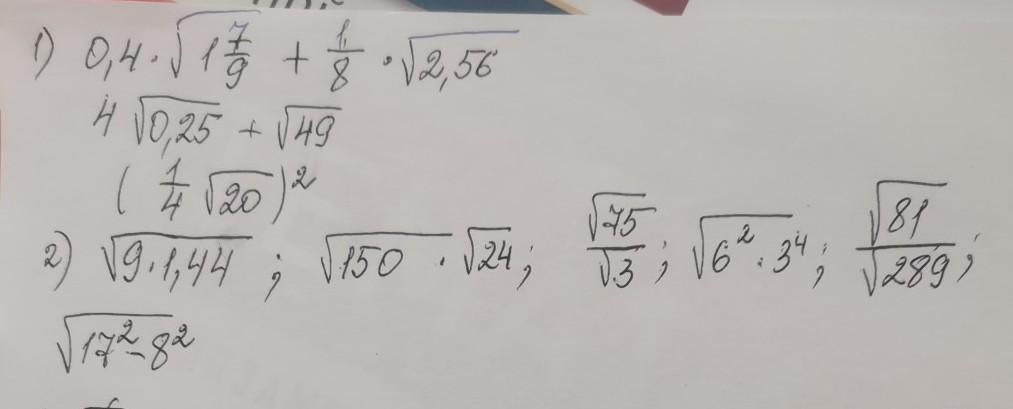 1) 0,4 · √(1 7/9) + 1/8 · √2,56
4 √0,25 + √49
(1/4 √20)²
2) √(9·1,44) ; √150 · √24 ; √75/√3 ; √(6² · 3⁴) ; √81/√289 ;
√(17² - 8²)